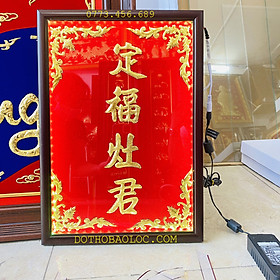 0773.456.689
定福灶君
DOTHOBAOLOC.COM